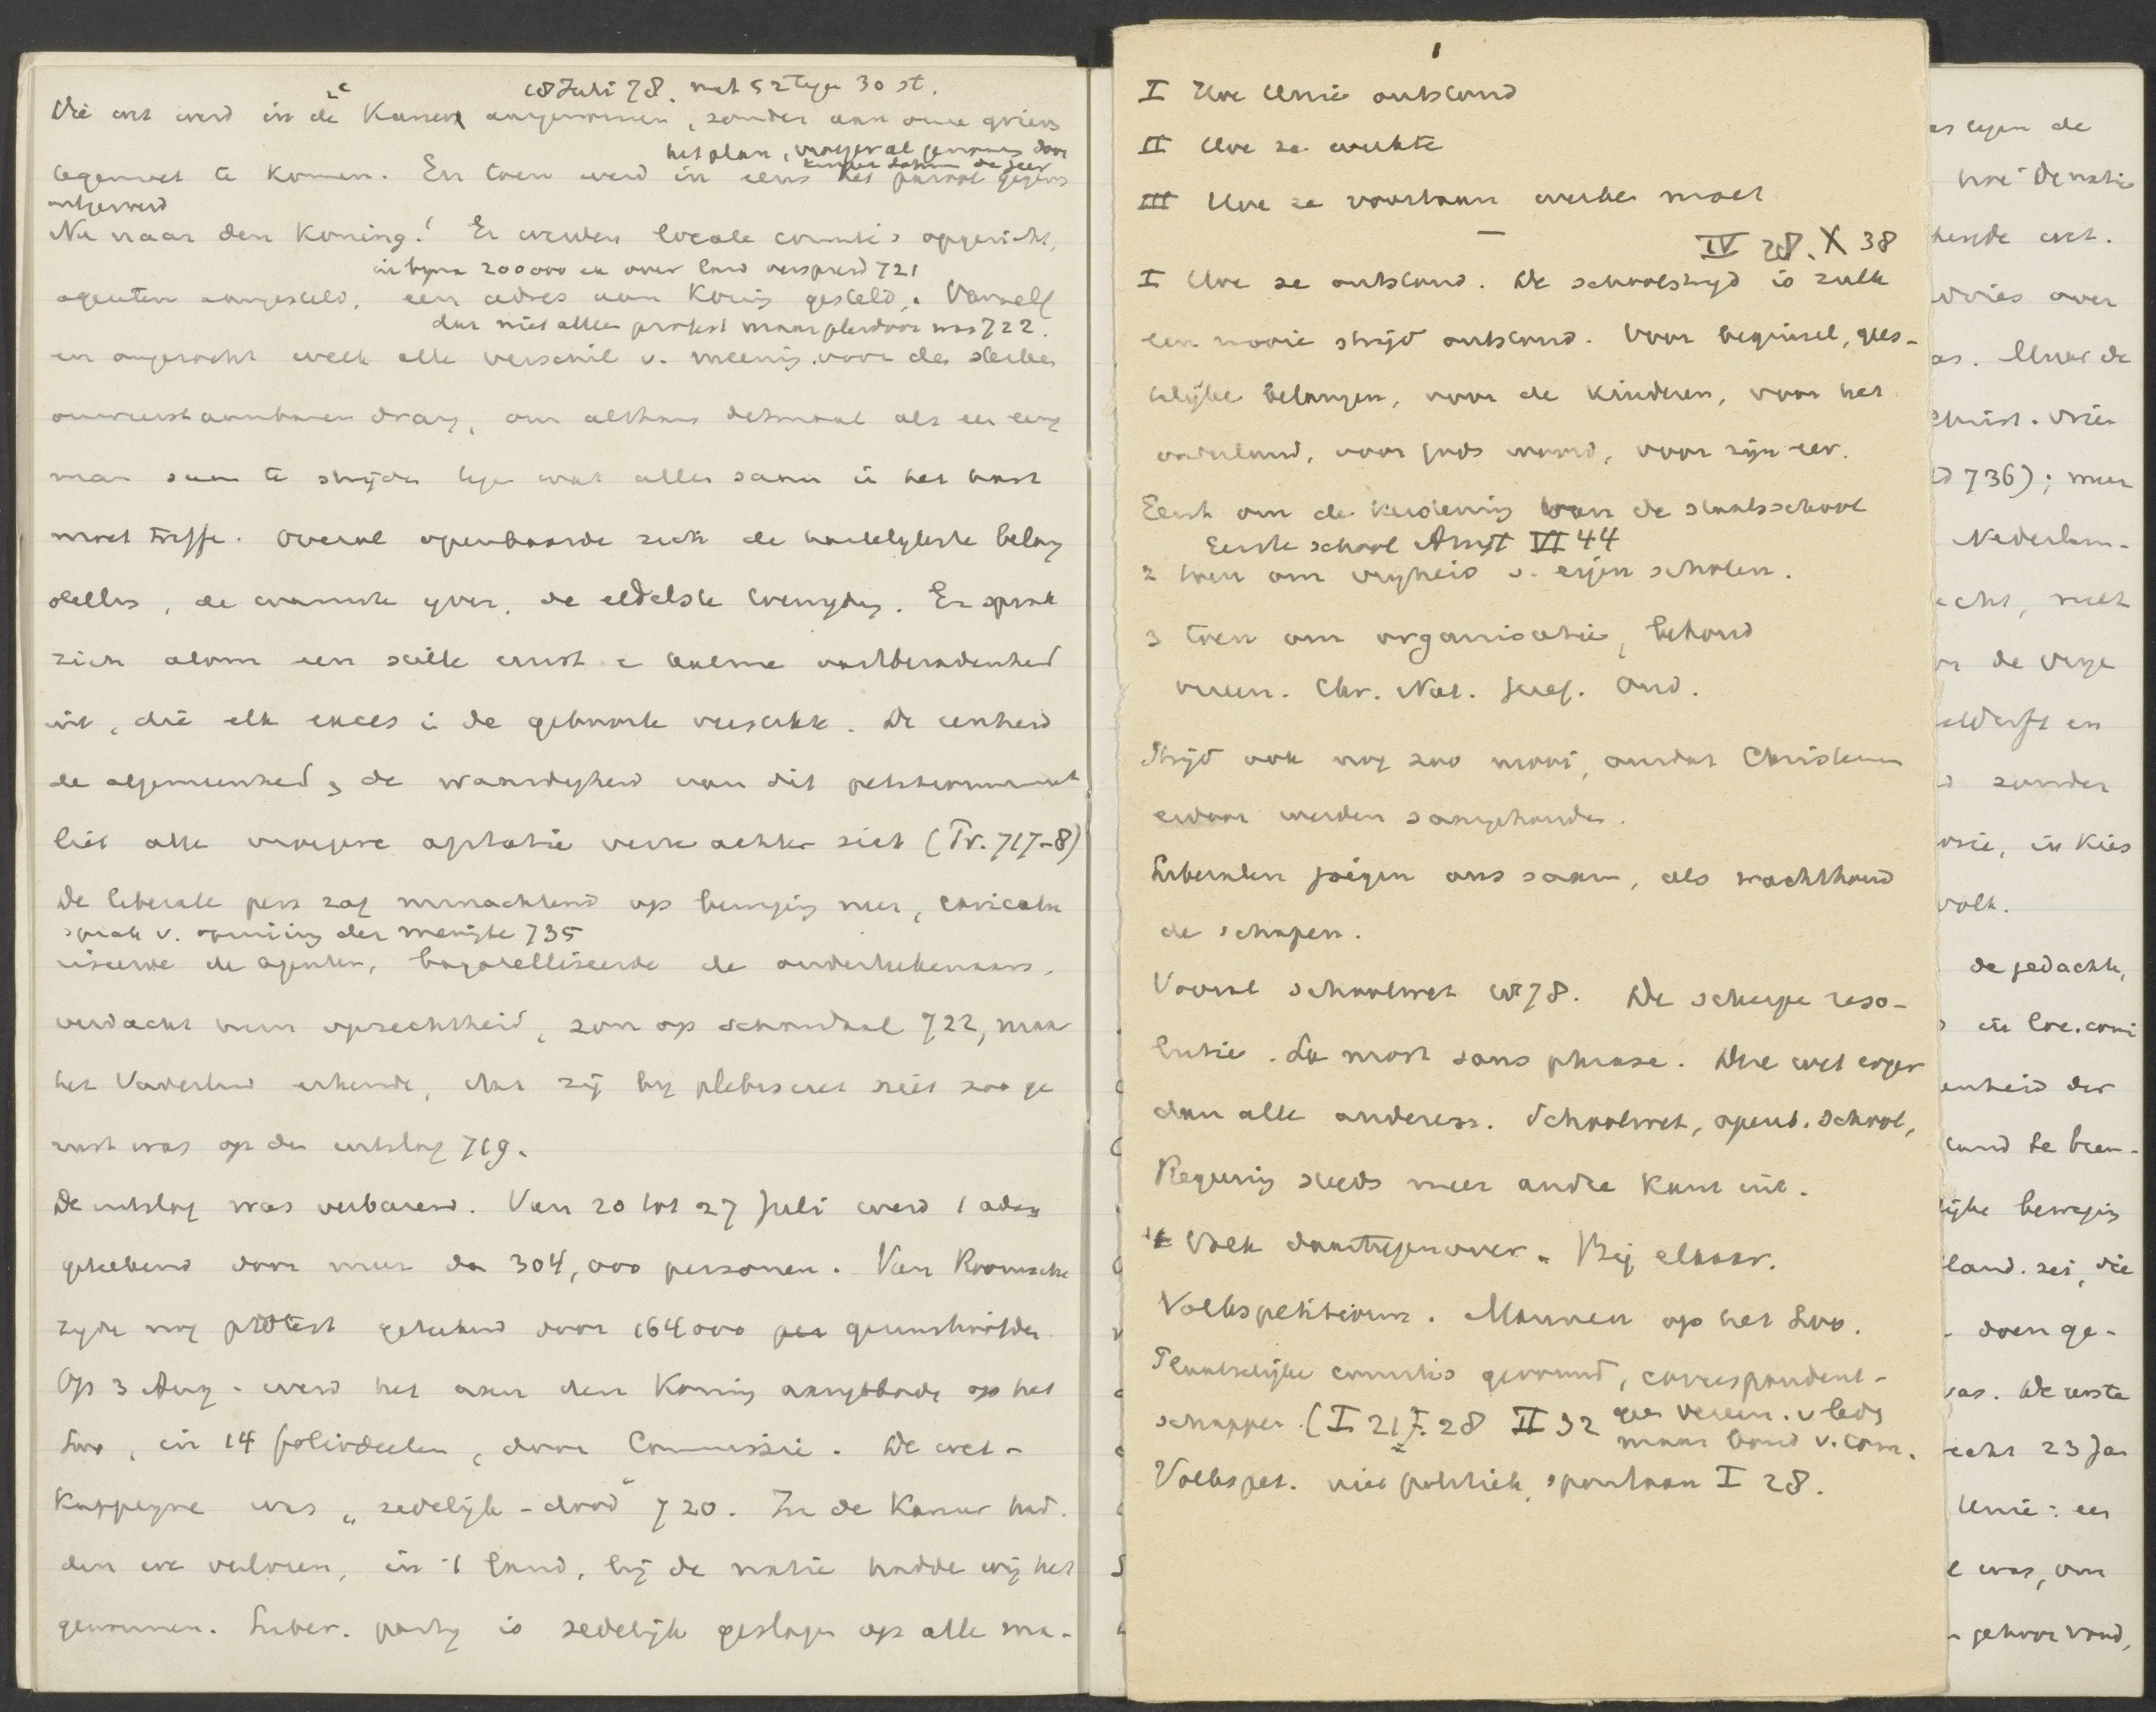 18 Juli 78. met 52 tegen 30 st.
Die wet werd in de 2e Kamer aangenomen, zonder aan onze grieven
het plan, vroeger al genomen door
tegemoet te komen. En toen werd in eens het
Nu naar den Koning! Er werden locale comité's opgericht,
in bijna 200000 ex over land verspreid 721
agenten aangesteld, een adres aan Koning gesteld. Vanzelf
dat niet alleen protest maar pleidooi was 722.
en ongeacht welk elk verschil v. meening voor des
drang, om althans ditmaal als een eenig
man saam te strijden tegen wat allen saam in het hart
moet treffen. Overal openbaarde zich de hartelijkste belang
stelling, de warmste yver, de edelste. Er sprak
zich alom een stille ernst en kalme vastberadenheid
uit, die elk exces in de geboorte verstikte. De eenheid
de algemeenheid, de waardigheid van dit petitionnement
liet alle vroegere agitatie verre achter zich (Tr. 717-8)
De liberale pers zag minachtend op beweging neer, caricatu
sprak v. opruiing der menigte 735
riseerde de agenten, bagatelliseerde de onderteekenaars,
verdacht hun oprechtheid, zon op schandaal 722, maar
het Vaderland erkende, dat zij bij plebisciet niet zoo ge
rust was op den uitslag 719.
De uitslag was verbazend. Van 20 tot 27 Juli werd 't adres
geteekend door meer dan 304,000 personen. Van Roomsche
zyde nog protest geteekend door 164000 per
Op 3 Aug. werd het aan den Koning aangeboden op het
Loo, in 14 foliodeelen, door Commissie. De wet-
Kappeyne was „zedelijk-dood” 720. In de Kamer had-
den we verloren, in 't land, bij de natie hadden wij het
gewonnen. Liber. party is zedelijk geslagen op alle ma-
1
I Hoe Unie ontstond
II Hoe ze werkte
III Hoe ze voortaan werken moet
—
IV 28. X 38
I Hoe ze ontstond. De schoolstrijd is zulk
een mooie strijd ontstond. Voor beginsel, gees-
telijke belangen, voor de kinderen, voor het
vaderland, voor Gods woord, voor zijn eer.
Eerst om de kerstening van de staatsschool
Eerste school Amst VI 44
2 toen om vryheid v. eigen scholen.
3 toen om organisatie, behoud
vereen. Chr. Nat. Gref. Ond.
Strijd ook nog zoo mooi, omdat Christenen
erdoor werden saamgehouden.
Liberalen joegen ons saam, als wachthond
de schapen.
Vooral schoolwet v 78. De scherpe reso-
lutie. La mort sans phrase. Die wet erger
dan alle anderen. Schoolwet, openb. school,
Regering steeds meer andre kant uit.
't Volk daartegenover. Bij elkaar.
Volkspetitionn. Mannen op het Loo.
Plaatselijke comités gevormd, correspondent-
schappen. (I 21, I 28 II 32 geen vereen. v leden
maar bond v. com.
Volkspet. niet politiek, spontaan I 28.
es tegen de
hoe de natie
hende wet.
as. Maar de
736); meer
Nederlan-
echt, niet
zonder
orie, in Kies
volk.
de gedachte,
in loc. comi
enheid der
ijke beweging
land. zei, die
- doen ge-
vas. De eerste
echt 23 Jan
Unie: een
e was, om
- gehoor vond,